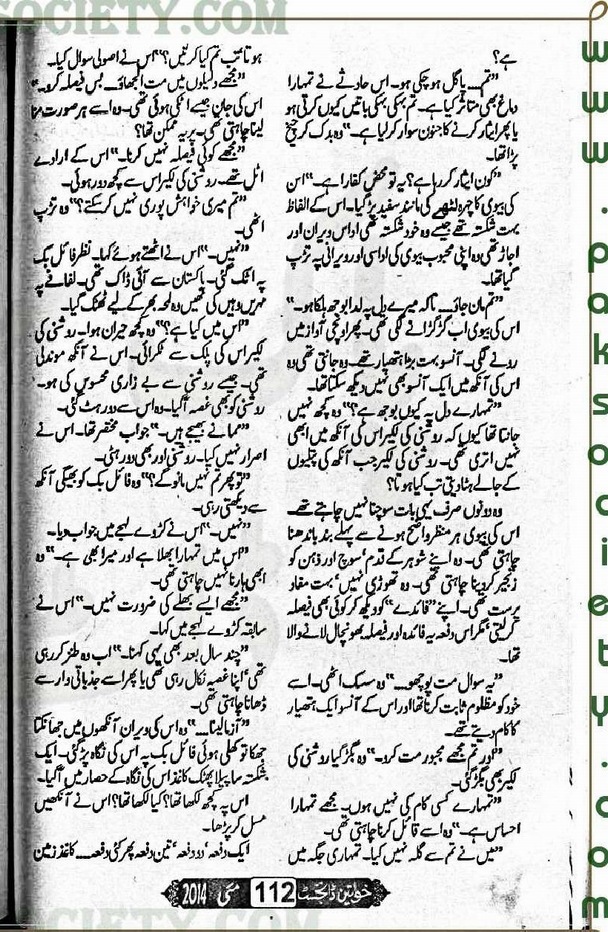 ہے؟
”تم... پاگل ہو چکی ہو۔ اس حادثے نے تمہارا
دماغ بھی متاثر کیا ہے۔ تم بہکی بہکی باتیں کیوں کرتی ہو
یا پھر ایثار کرنے کا جنون سوار کر لیا ہے۔“ وہ بدک کر چیخ
پڑا تھا۔
”کون ایثار کر رہا ہے؟ یہ تو محض کفارا ہے۔“ اس
کی بیوی کا چہرہ لٹھے کی مانند سفید پڑ گیا۔ اس کے الفاظ
بہت شکستہ تھے جیسے وہ خود شکستہ تھی اداس ویران اور
اجاڑ تھی وہ اپنی محبوب بیوی کی اداسی اور ویرانی پہ تڑپ
گیا تھا۔
”تم مان جاؤ... تاکہ میرے دل پہ لدا بوجھ ہلکا ہو۔“
اس کی بیوی اب گڑگڑانے لگی تھی۔ پھر اونچی آواز میں
رونے لگی۔ آنسو بہت بڑا ہتھیار تھے۔ وہ جانتی تھی وہ
اس کی آنکھ میں ایک آنسو بھی نہیں دیکھ سکتا تھا۔
”تمہارے دل پہ کیوں بوجھ ہے؟“ وہ کچھ نہیں
جانتا تھا کیوں کہ روشنی کی لکیر اس کی آنکھ میں ابھی
نہیں اتری تھی۔ روشنی کی لکیر جب آنکھ کی پتلیوں
کے جالے ہٹا دیتی تب کیا ہوتا؟
وہ دونوں صرف یہی بات سوچنا نہیں چاہتے تھے۔
اس کی بیوی ہر منظر واضح ہونے سے پہلے بند باندھنا
چاہتی تھی۔ وہ اپنے شوہر کے قدم، سوچ اور ذہن کو
زنجیر کر دینا چاہتی تھی۔ وہ تھوڑی نہیں، بہت مفاد
پرست تھی۔ اپنے ”فائدے“ کو دیکھ کر کوئی بھی فیصلہ
کر لیتی، مگر اس دفعہ یہ فائدہ اور فیصلہ بھونچال لانے والا
تھا۔
”یہ سوال مت پوچھو...“ وہ سسک اٹھی۔ اسے
خود کو مظلوم ثابت کرنا تھا اور اس کے آنسو ایک ہتھیار
کا کام دیتے تھے۔
”اور تم مجھے مجبور مت کرو۔“ وہ بگڑ گیا روشنی کی
لکیر بھی بگڑ گئی۔
”تمہارے کسی کام کی نہیں ہوں۔ مجھے تمہارا
احساس ہے۔“ وہ اسے قائل کرنا چاہتی تھی۔
”میں نے تم سے گلہ نہیں کیا۔ تمہاری جگہ میں
ہوتا تب تم کیا کرتیں؟“ اس نے اصولی سوال کیا۔
”مجھے دلیلوں میں مت الجھاؤ۔ بس فیصلہ کرو۔“
اس کی جان جیسے اٹکی ہوئی تھی۔ وہ اسے ہر صورت منا
لینا چاہتی تھی۔ پر یہ ممکن تھا؟
”مجھے کوئی فیصلہ نہیں کرنا۔“ اس کے ارادے
اٹل تھے۔ روشنی کی لکیر اس سے کچھ دور ہوئی۔
”تم میری خواہش پوری نہیں کر سکتے؟“ وہ تڑپ
اٹھی۔
”نہیں۔“ اس نے اٹھتے ہوئے کہا۔ نظر فائل بک
پہ اٹک گئی۔ پاکستان سے آئی ڈاک تھی۔ لفافے پہ
مہریں وہیں کی تھیں وہ لمحہ بھر کے لیے ٹھٹک گیا۔
”اس میں کیا ہے؟“ وہ کچھ حیران ہوا۔ روشنی کی
لکیر اس کی پلک سے ٹکرائی۔ اس نے آنکھ موند لی
تھی۔ جیسے روشنی سے بے زاری محسوس کی ہو۔
روشنی کو بھی غصہ آ گیا۔ وہ اس سے دور ہٹ گئی۔
”مما نے بھیجے ہیں۔“ جواب مختصر تھا۔ اس نے
اصرار نہیں کیا۔ روشنی اور بھی دور ہٹی۔
”تو پھر تم نہیں مانو گے؟“ وہ فائل بک کو بھیگی آنکھ
سے دیکھتی رہی۔
”نہیں۔“ اس نے کڑوے لہجے میں جواب دیا۔
”اس میں تمہارا بھلا ہے اور میرا بھی ہے۔“ وہ
ابھی ہارنا نہیں چاہتی تھی۔
”مجھے ایسے بھلے کی ضرورت نہیں۔“ اس نے
سابقہ کڑوے لہجے میں کہا۔
”چند سال بعد بھی یہی کہنا۔“ اب وہ طنز کر رہی
تھی، اپنا غصہ نکال رہی تھی یا پھر اسے جذباتی وار سے
ڈھانا چاہتی تھی۔
”آزما لینا...“ وہ اس کی ویران آنکھوں میں جھانکتا
جھکا تو کھلی ہوئی فائل بک پہ اس کی نگاہ پڑ گئی۔ ایک
شکستہ سا پیلا پھٹک کاغذ اس کی نگاہ کے حصار میں آ گیا۔
اس پہ کچھ لکھا تھا؟ کیا لکھا تھا؟ اس نے آنکھیں
مسل کر پڑھا۔
ایک دفعہ، دو دفعہ، تین دفعہ پھر کئی دفعہ... کاغذ زمین
خواتین ڈائجسٹ 112 مئی 2014
www.paksociety.com
SOCIETY.COM